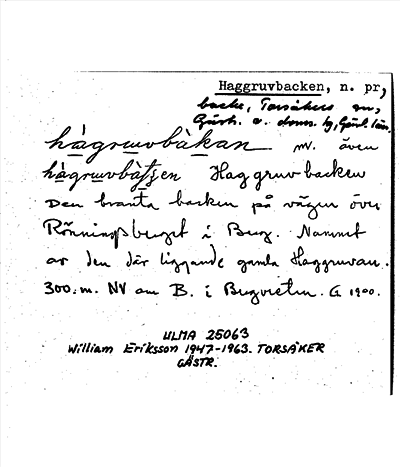 Haggruvbacken, n. pr,
backe, Torsåkers sn,
Gästr. ö. doms. tg, Gävl. län.
hàgruvbàkan m. även
hàgruvbàʃʃen Haggruvbacken
Den branta backen på vägen över
Rönningsberget i Berg. Namnet
av den där liggande gamla Haggruvan.
300.m. NV om B. i Bergvreten. G 1900.
ULMA 25063
William Eriksson 1947-1963. TORSÅKER
GÄSTR.